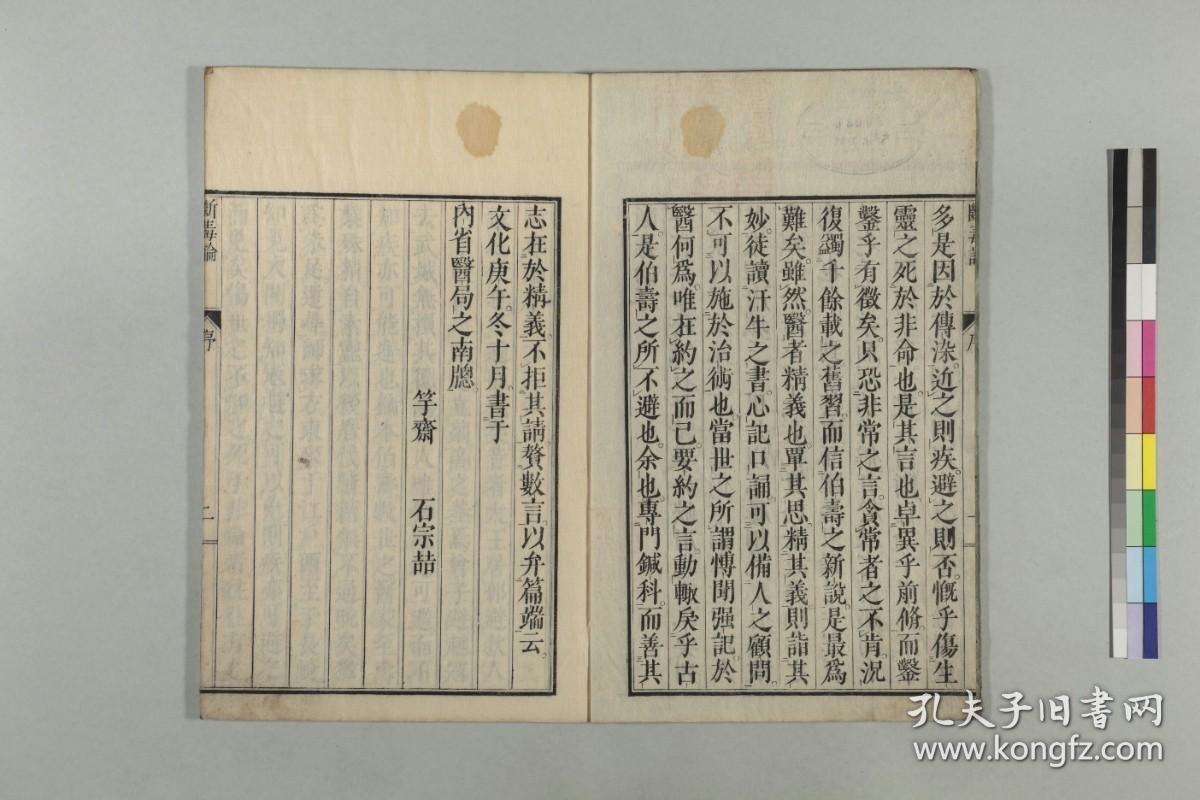 多是因於傳染。近之則疾。避之則否。慨乎傷生
靈之死於非命也。是其言也。卓異乎前脩。而鑿
鑿乎有徵矣。只恐非常之言。貪常者之不肯。況
復蠲千餘載之舊習。而信伯壽之新說。是最爲
難矣。雖然。醫者精義也。單其思。精其義。則詣其
妙。徒讀汗牛之書。心記口誦。可以備人之顧問。
不可以施於治術也。當世之所謂博聞强記。於
醫何爲。唯在約之而已。要約之言。動輙戾乎古
人。是伯壽之所不避也。余也專門鍼科。而善其
志在於精義。不拒其請。贅數言。以弁篇端云。
文化庚午。冬十月。書于
內省醫局之南牕
竽齋 石宗喆
斷毒論 序 二
孔夫子旧书网
www.kongfz.com